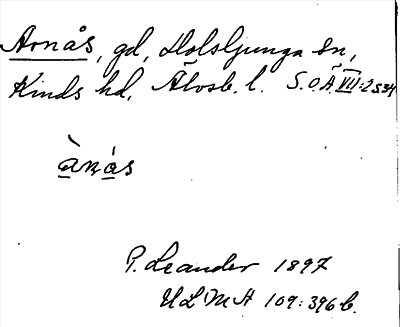 Arnås, gd, Holsljunga sn,
Kinds hd, Älvsb. l. S.O.Ä VII:2 S 34
ànás
P. Leander 1897
ULMA 109:396 b.